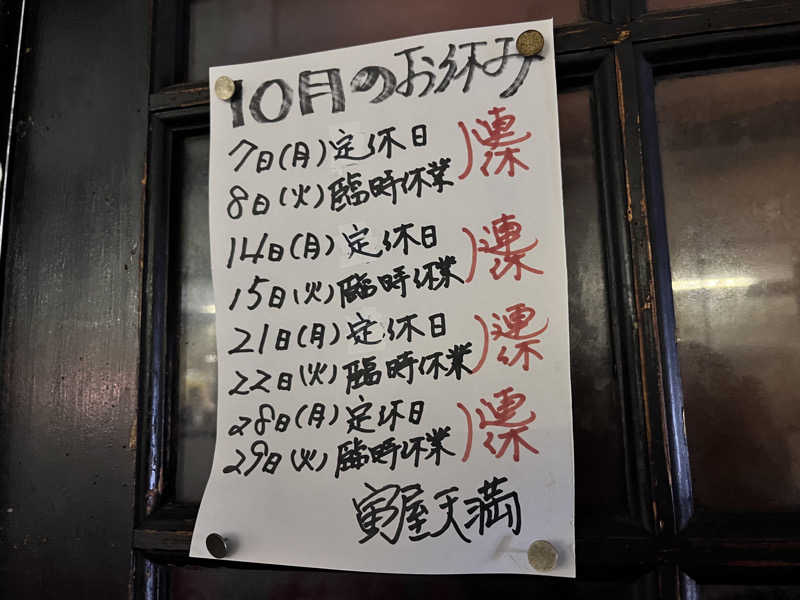 10月のお休み
7日(月)定休日
8日(火)臨時休業
連休
14日(月)定休日
15日(火)臨時休業
連休
21日(月)定休日
22日(火)臨時休業
連休
28日(月)定休日
29日(火)臨時休業
連休
寅屋天満